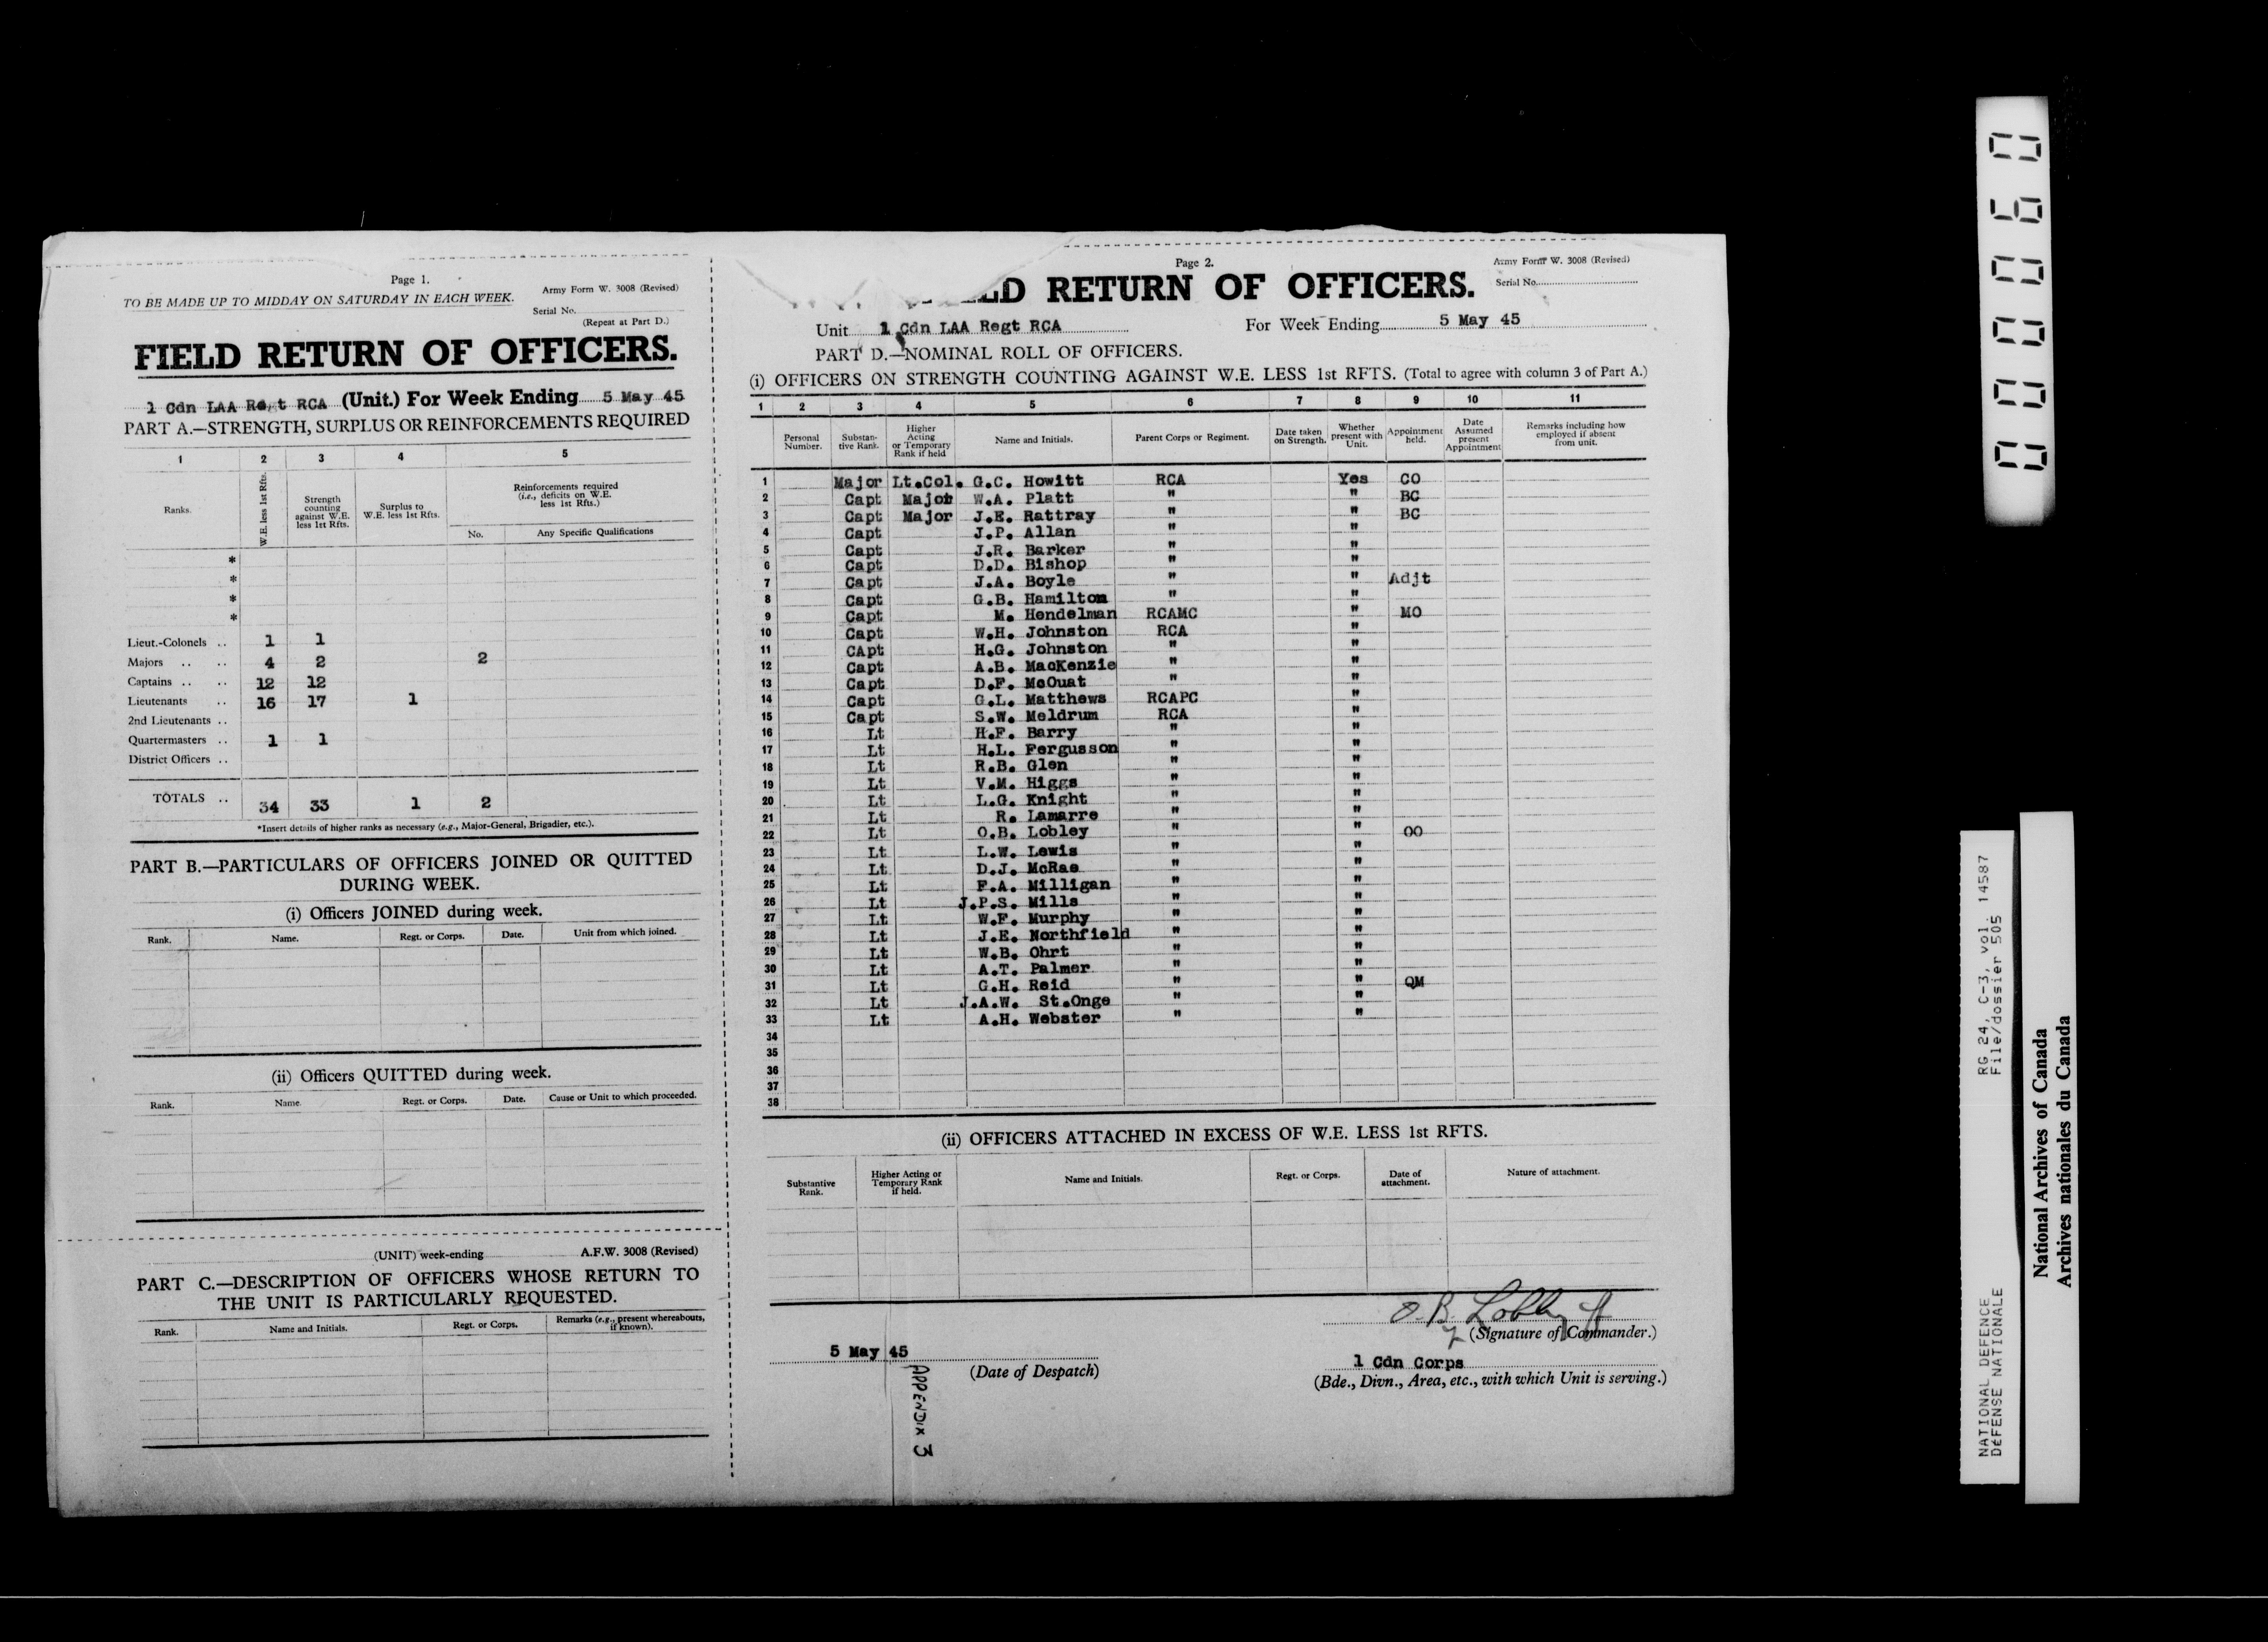 Page 1.
TO BE MADE UP TO MIDDAY ON SATURDAY IN EACH WEEK.
Army Form W. 3008 (Revised)
Serial No.
(Repeat at Part D.)
FIELD RETURN OF OFFICERS.
1 Cdn LAA Regt RCA (Unit.) For Week Ending 5 May 45
PART A.—STRENGTH, SURPLUS OR REINFORCEMENTS REQUIRED
1 2 3 4 5
Ranks. W.E. less 1st Rfts. Strength counting against W.E. less 1st Rfts. Surplus to W.E. less 1st Rfts. Reinforcements required (i.e., deficits on W.E. less 1st Rfts.)
No. Any Specific Qualifications
*
*
*
*
Lieut.-Colonels .. 1 1
Majors .. .. 4 2 2
Captains .. .. 12 12
Lieutenants .. 16 17 1
2nd Lieutenants ..
Quartermasters .. 1 1
District Officers ..
TOTALS .. 34 33 1 2
*Insert details of higher ranks as necessary (e.g., Major-General, Brigadier, etc.).
PART B.—PARTICULARS OF OFFICERS JOINED OR QUITTED
DURING WEEK.
(i) Officers JOINED during week.
Rank. Name. Regt. or Corps. Date. Unit from which joined.
(ii) Officers QUITTED during week.
Rank. Name. Regt. or Corps. Date. Cause or Unit to which proceeded.
(UNIT) week-ending A.F.W. 3008 (Revised)
PART C.—DESCRIPTION OF OFFICERS WHOSE RETURN TO
THE UNIT IS PARTICULARLY REQUESTED.
Rank. Name and Initials. Regt. or Corps. Remarks (e.g., present whereabouts, if known).
Page 2.
Army Form W. 3008 (Revised)
Serial No.
LD RETURN OF OFFICERS.
Unit 1 Cdn LAA Regt RCA For Week Ending 5 May 45
PART D.—NOMINAL ROLL OF OFFICERS.
(i) OFFICERS ON STRENGTH COUNTING AGAINST W.E. LESS 1st RFTS. (Total to agree with column 3 of Part A.)
1 2 3 4 5 6 7 8 9 10 11
Personal Number. Substantive Rank. Higher Acting or Temporary Rank if held Name and Initials. Parent Corps or Regiment. Date taken on Strength. Whether present with Unit. Appointment held. Date Assumed present Appointment Remarks including how employed if absent from unit.
1 Major Lt.Col. G.C. Howitt RCA Yes CO
2 Capt Major W.A. Platt " " BC
3 Capt Major J.E. Rattray " " BC
4 Capt J.P. Allan " "
5 Capt J.R. Barker " "
6 Capt D.D. Bishop " "
7 Capt J.A. Boyle " " Adjt
8 Capt G.B. Hamilton " "
9 Capt M. Hendelman RCAMC " MO
10 Capt W.H. Johnston RCA "
11 CApt H.G. Johnston " "
12 Capt A.B. MacKenzie " "
13 Capt D.F. McOuat " "
14 Capt G.L. Matthews RCAPC "
15 Capt S.W. Meldrum RCA "
16 Lt H.F. Barry " "
17 Lt H.L. Fergusson " "
18 Lt R.B. Glen " "
19 Lt V.M. Higgs " "
20 Lt L.G. Knight " "
21 Lt R. Lamarre " "
22 Lt O.B. Lobley " " OO
23 Lt L.W. Lewis " "
24 Lt D.J. McRae " "
25 Lt F.A. Milligan " "
26 Lt J.P.S. Mills " "
27 Lt W.F. Murphy " "
28 Lt J.E. Northfield " "
29 Lt W.B. Ohrt " "
30 Lt A.T. Palmer " "
31 Lt G.H. Reid " " QM
32 Lt J.A.W. St.Onge " "
33 Lt A.H. Webster " "
34
35
36
37
38
(ii) OFFICERS ATTACHED IN EXCESS OF W.E. LESS 1st RFTS.
Substantive Rank. Higher Acting or Temporary Rank if held. Name and Initials. Regt. or Corps. Date of attachment. Nature of attachment.
O.B. Lobley Lt
(Signature of Commander.)
5 May 45
(Date of Despatch)
1 Cdn Corps
(Bde., Divn., Area, etc., with which Unit is serving.)
APPENDIX 3
000060
RG 24, C-3, vol. 14587
File/dossier 505
NATIONAL DEFENCE
DÉFENSE NATIONALE
National Archives of Canada
Archives nationales du Canada